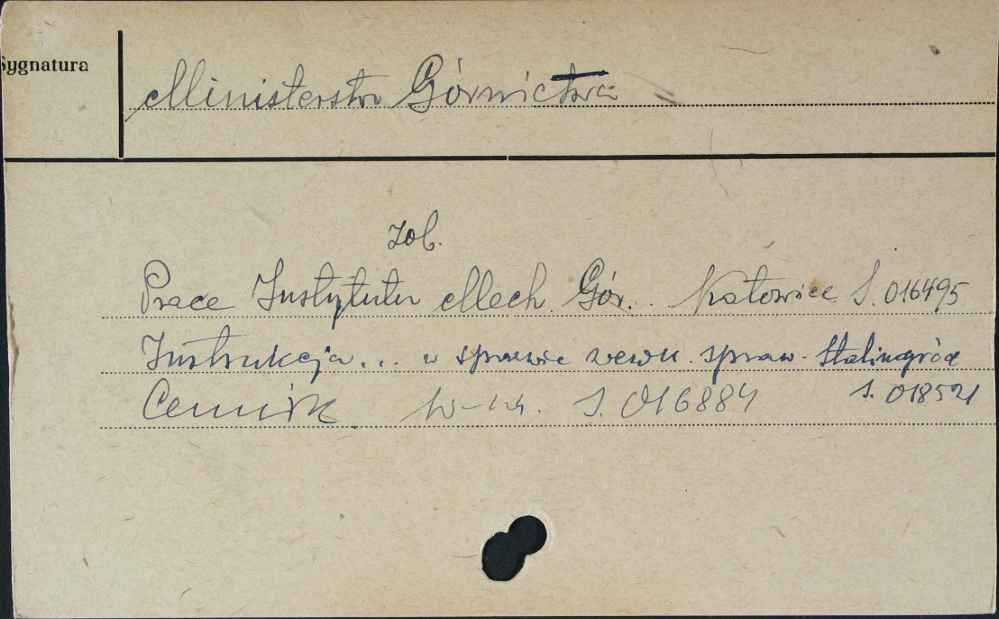 Sygnatura
Ministerstwo Górnictwa
zob.
Prace Instytutu Mech. Gór. Katowice S. 016495
Instrukcja... w sprawie wewn. spraw. Stalinogród
S. 018521
Cennik W-wa. S. 016884